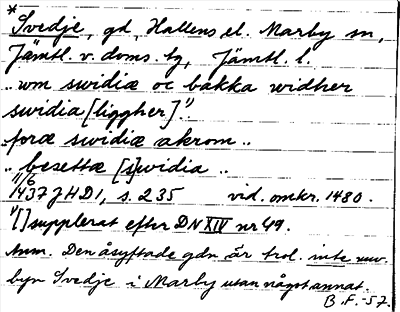 *
Svedje, gd, Hallens el. Marby sn,
Jämtl. v. doms. tg, Jämtl. l.
.. um swidiæ oc bakka widher
swidia [liggher]¹⁾..
..foræ swidiæ akrom ..
.. besettæ [s]widia ..
11/6
1437 JHD1, s. 235 vid. omkr. 1480.
¹⁾[] supplerat efter DN XIV nr 49.
Anm. Den åsyftade gdn är trol. inte nuv.
byn Svedje i Marby utan något annat.
B.F. -57.